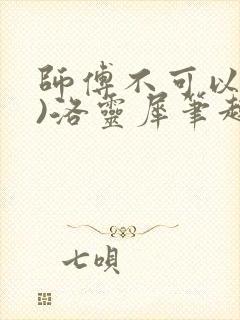 師傅不可以
)洛靈犀筆趣
七唄